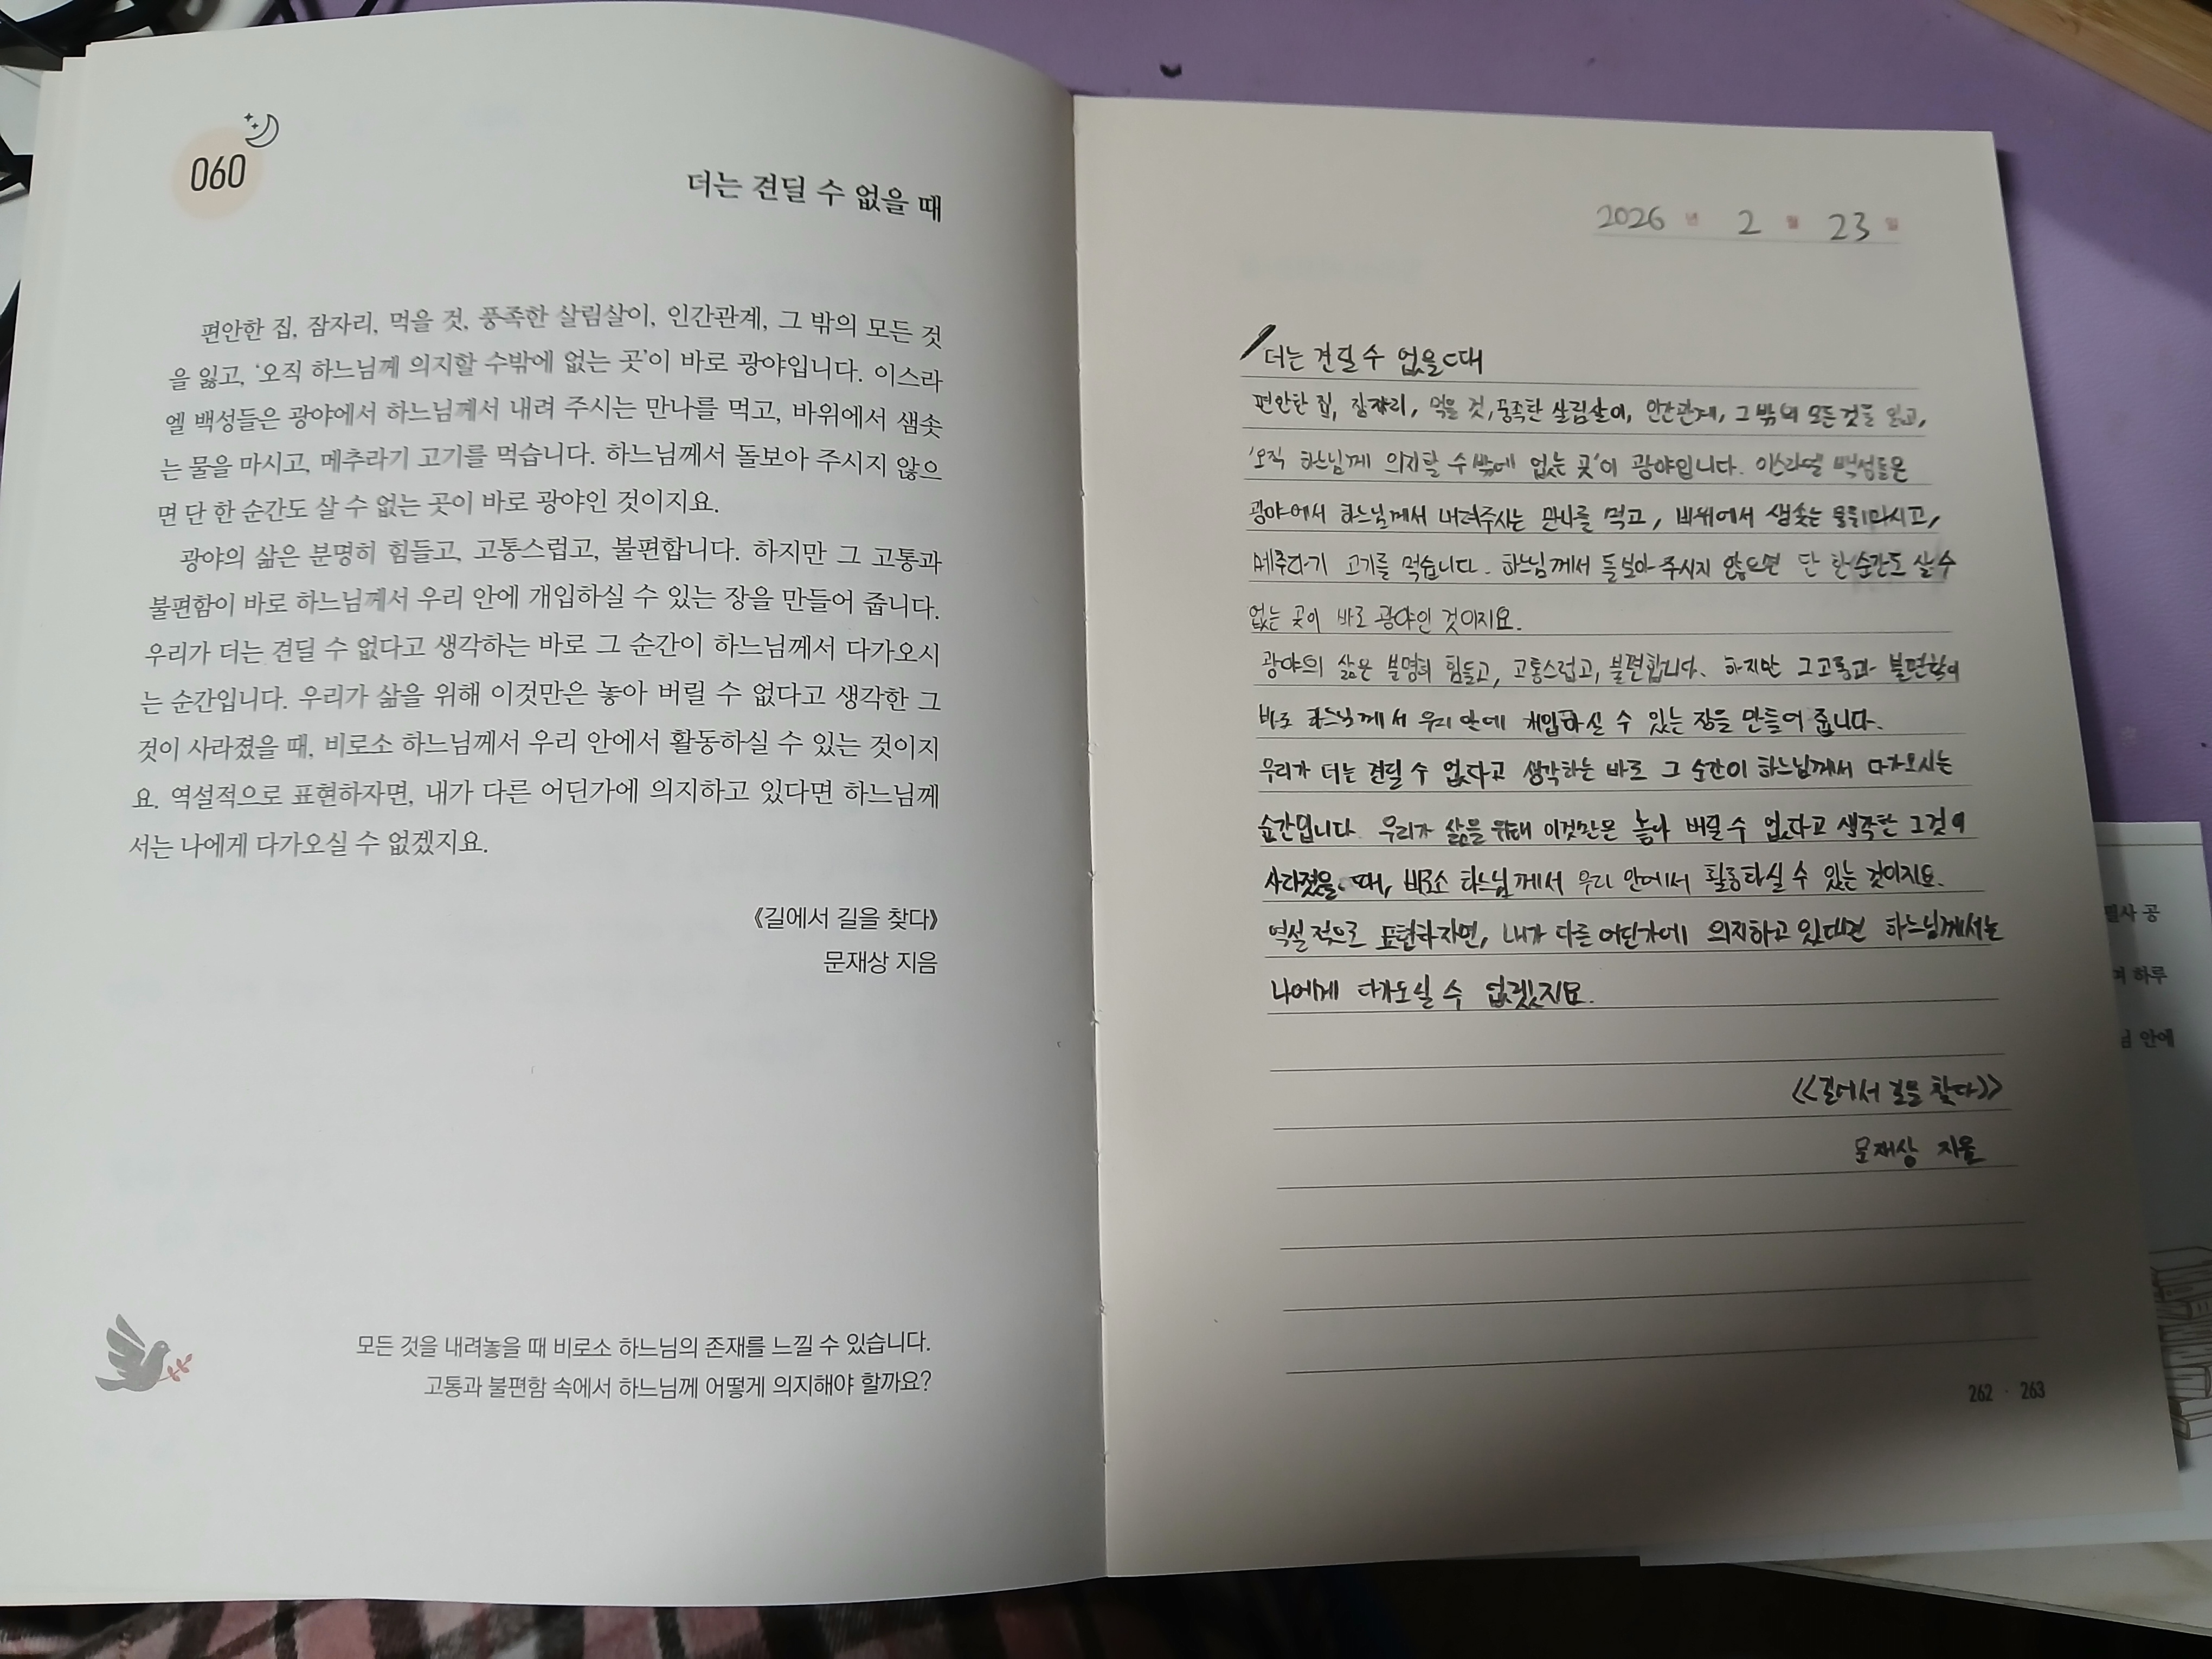 060
더는 견딜 수 없을 때
편안한 집, 잠자리, 먹을 것, 풍족한 살림살이, 인간관계, 그 밖의 모든 것
을 잃고, '오직 하느님께 의지할 수밖에 없는 곳'이 바로 광야입니다. 이스라
엘 백성들은 광야에서 하느님께서 내려 주시는 만나를 먹고, 바위에서 샘솟
는 물을 마시고, 메추라기 고기를 먹습니다. 하느님께서 돌보아 주시지 않으
면 단 한 순간도 살 수 없는 곳이 바로 광야인 것이지요.
광야의 삶은 분명히 힘들고, 고통스럽고, 불편합니다. 하지만 그 고통과
불편함이 바로 하느님께서 우리 안에 개입하실 수 있는 장을 만들어 줍니다.
우리가 더는 견딜 수 없다고 생각하는 바로 그 순간이 하느님께서 다가오시
는 순간입니다. 우리가 삶을 위해 이것만은 놓아 버릴 수 없다고 생각한 그
것이 사라졌을 때, 비로소 하느님께서 우리 안에서 활동하실 수 있는 것이지
요. 역설적으로 표현하자면, 내가 다른 어딘가에 의지하고 있다면 하느님께
서는 나에게 다가오실 수 없겠지요.
《길에서 길을 찾다》
문재상 지음
모든 것을 내려놓을 때 비로소 하느님의 존재를 느낄 수 있습니다.
고통과 불편함 속에서 하느님께 어떻게 의지해야 할까요?
2026 년 2 월 23 일
더는 견딜 수 없을 때
편안한 집, 잠자리, 먹을 것, 풍족한 살림살이, 인간관계, 그 밖의 모든 것을 잃고,
'오직 하느님께 의지할 수밖에 없는 곳'이 광야입니다. 이스라엘 백성들은
광야에서 하느님께서 내려주시는 만나를 먹고, 바위에서 샘솟는 물을 마시고,
메추라기 고기를 먹습니다. 하느님께서 돌보아 주시지 않으면 단 한 순간도 살 수
없는 곳이 바로 광야인 것이지요.
광야의 삶은 분명히 힘들고, 고통스럽고, 불편합니다. 하지만 그 고통과 불편함이
바로 하느님께서 우리 안에 개입하실 수 있는 장을 만들어 줍니다.
우리가 더는 견딜 수 없다고 생각하는 바로 그 순간이 하느님께서 다가오시는
순간입니다. 우리가 삶을 위해 이것만은 놓아 버릴 수 없다고 생각한 그것이
사라졌을 때, 비로소 하느님께서 우리 안에서 활동하실 수 있는 것이지요.
역설적으로 표현하자면, 내가 다른 어딘가에 의지하고 있다면 하느님께서는
나에게 다가오실 수 없겠지요.
《길에서 길을 찾다》
문재상 지음
262 · 263
필사 공
하루
안에